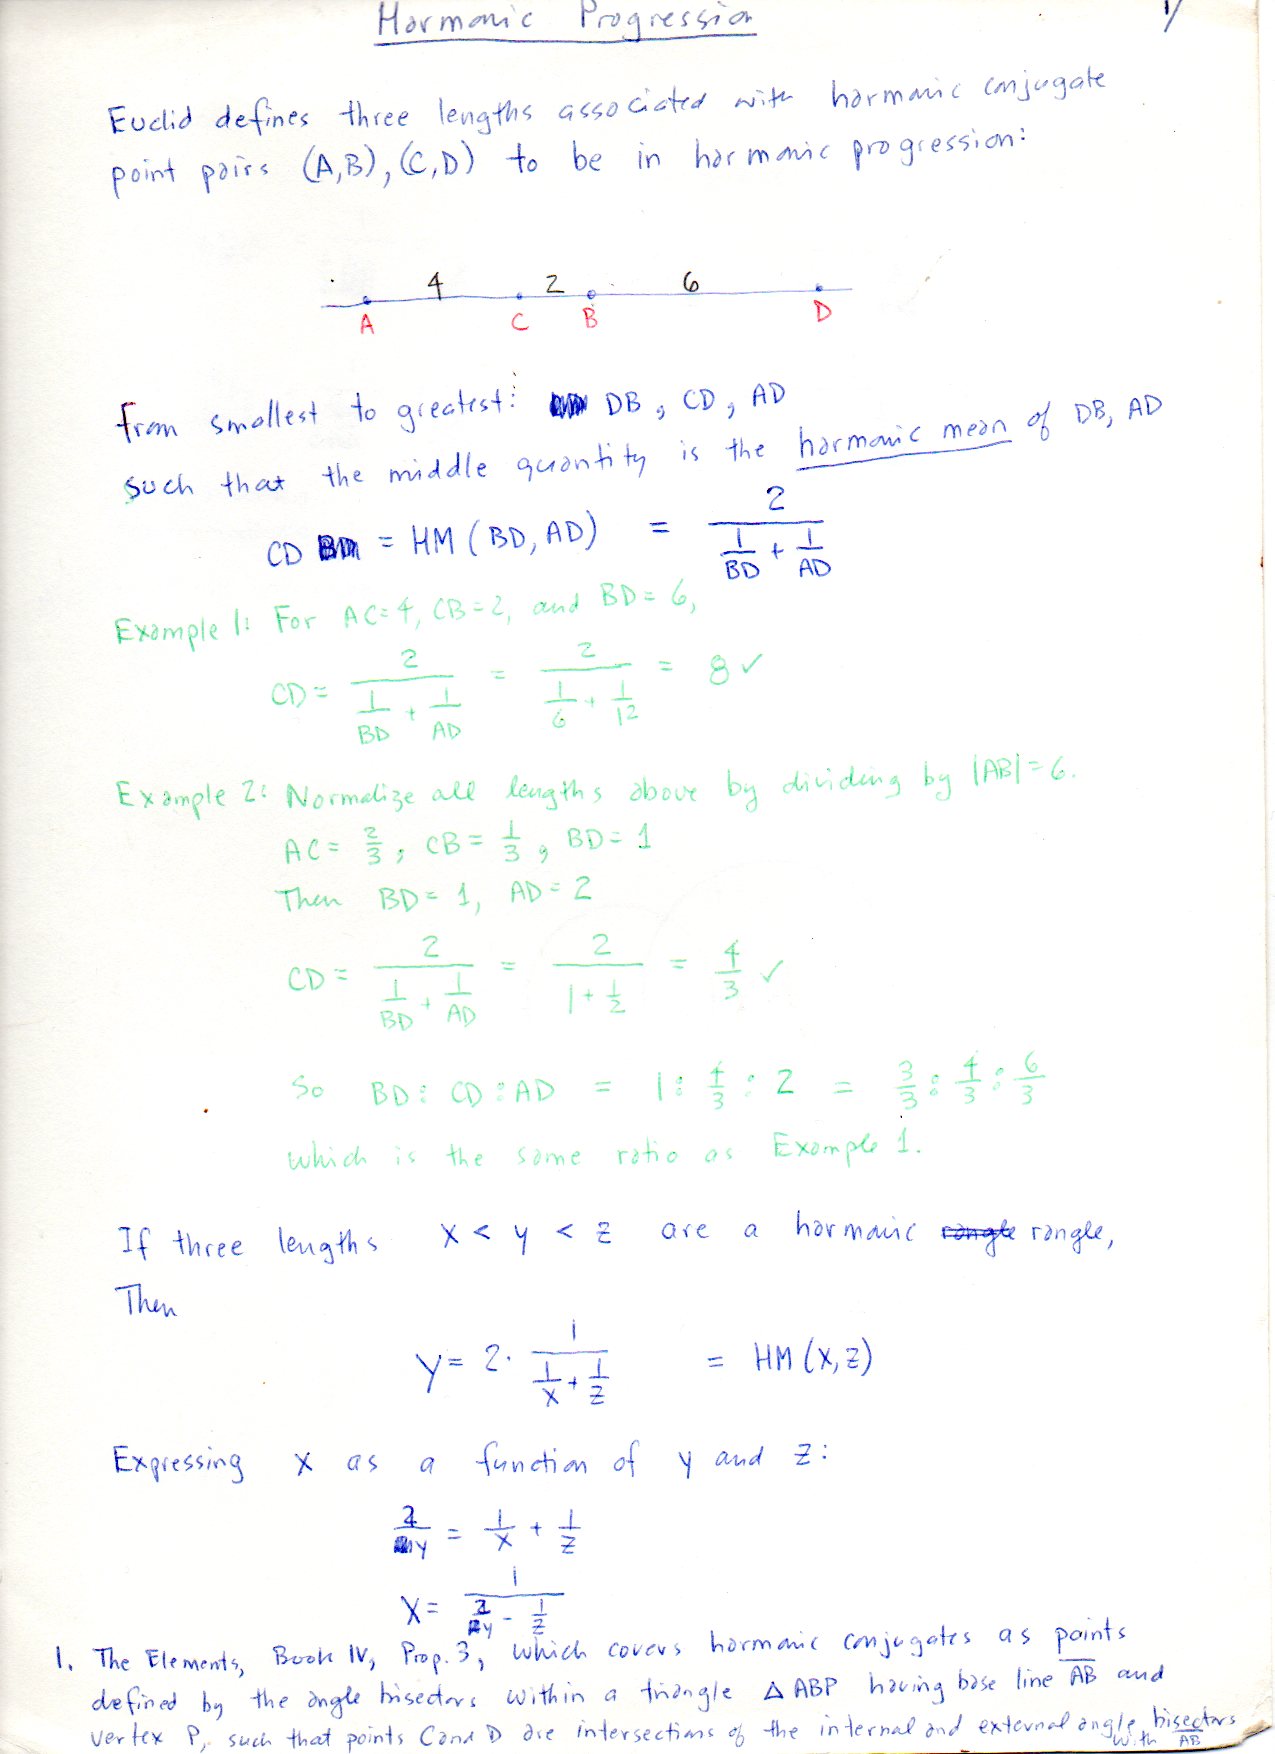 Harmonic Progression 1/
Euclid defines three lengths associated with harmonic conjugate
point pairs (A,B), (C,D) to be in harmonic progression:
4 2 6
A C B D
From smallest to greatest: DB, CD, AD
such that the middle quantity is the harmonic mean of DB, AD
CD = HM (BD, AD) = 2 / (1/BD + 1/AD)
Example 1: For AC=4, CB=2, and BD=6,
CD = 2 / (1/BD + 1/AD) = 2 / (1/6 + 1/12) = 8 ✓
Example 2: Normalize all lengths above by dividing by |AB|=6.
AC = 2/3, CB = 1/3, BD = 1
Then BD = 1, AD = 2
CD = 2 / (1/BD + 1/AD) = 2 / (1 + 1/2) = 4/3 ✓
So BD : CD : AD = 1 : 4/3 : 2 = 3/3 : 4/3 : 6/3
which is the same ratio as Example 1.
If three lengths x < y < z are a harmonic rangle,
Then
y = 2 · 1 / (1/x + 1/z) = HM (x, z)
Expressing x as a function of y and z:
2/y = 1/x + 1/z
x = 1 / (2/y - 1/z)
1. The Elements, Book IV, Prop. 3, which covers harmonic conjugates as points
defined by the angle bisectors within a triangle △ABP having base line AB and
vertex P, such that points C and D are intersections of the internal and external angle bisectors
with AB